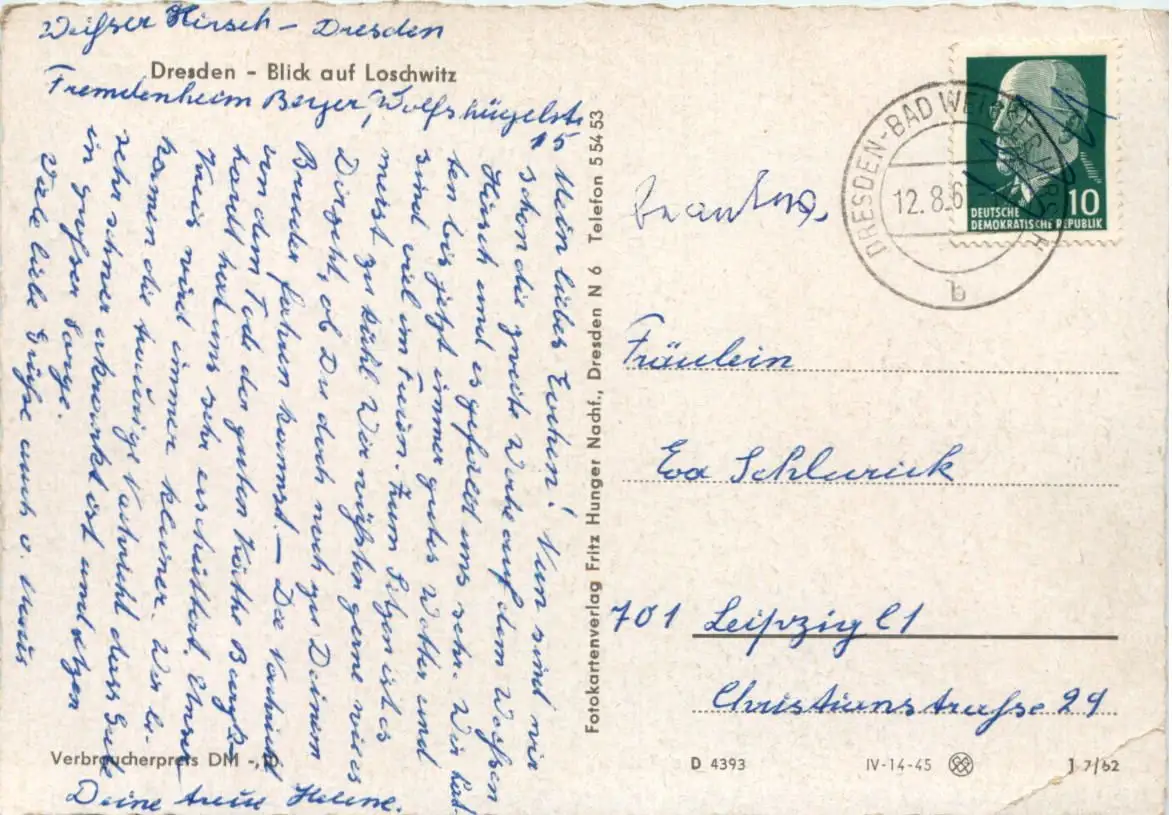 Weißer Hirsch - Dresden
Dresden - Blick auf Loschwitz
Fremdenheim Berger, Wolfshügelstr.
15
Mein liebes Evchen! Nun sind wir
schon die zweite Woche auf dem Weißen
Hirsch und es gefällt uns sehr. Wir hat-
ten bis jetzt immer gutes Wetter und
sind viel im Freien. Zum Sitzen ist es
meist zu kühl. Wir wüßten gerne wie es
Dir geht, ob Du doch noch zu Deinem
Bruder fahren kannst. - Die Nachricht
von dem Tode der guten Käthe
hat uns sehr erschüttert. Unser
Kreis wird immer kleiner. Wir be-
kamen die traurige Nachricht dass
sehr schwer erkrankt ist und
in großer Sorge.
Viele liebe Grüße auch v.
Deine treue Helene.
Verbraucherpreis DM -,10
Fotokartenverlag Fritz Hunger Nachf., Dresden N 6 Telefon 5 54 53
DRESDEN-BAD WEISSER HIRSCH
12.8.6
b
10
DEUTSCHE
DEMOKRATISCHE REPUBLIK
Fräulein
Eva
701 Leipzig C1
Christianstraße 29
D 4393
IV-14-45
1 7/62